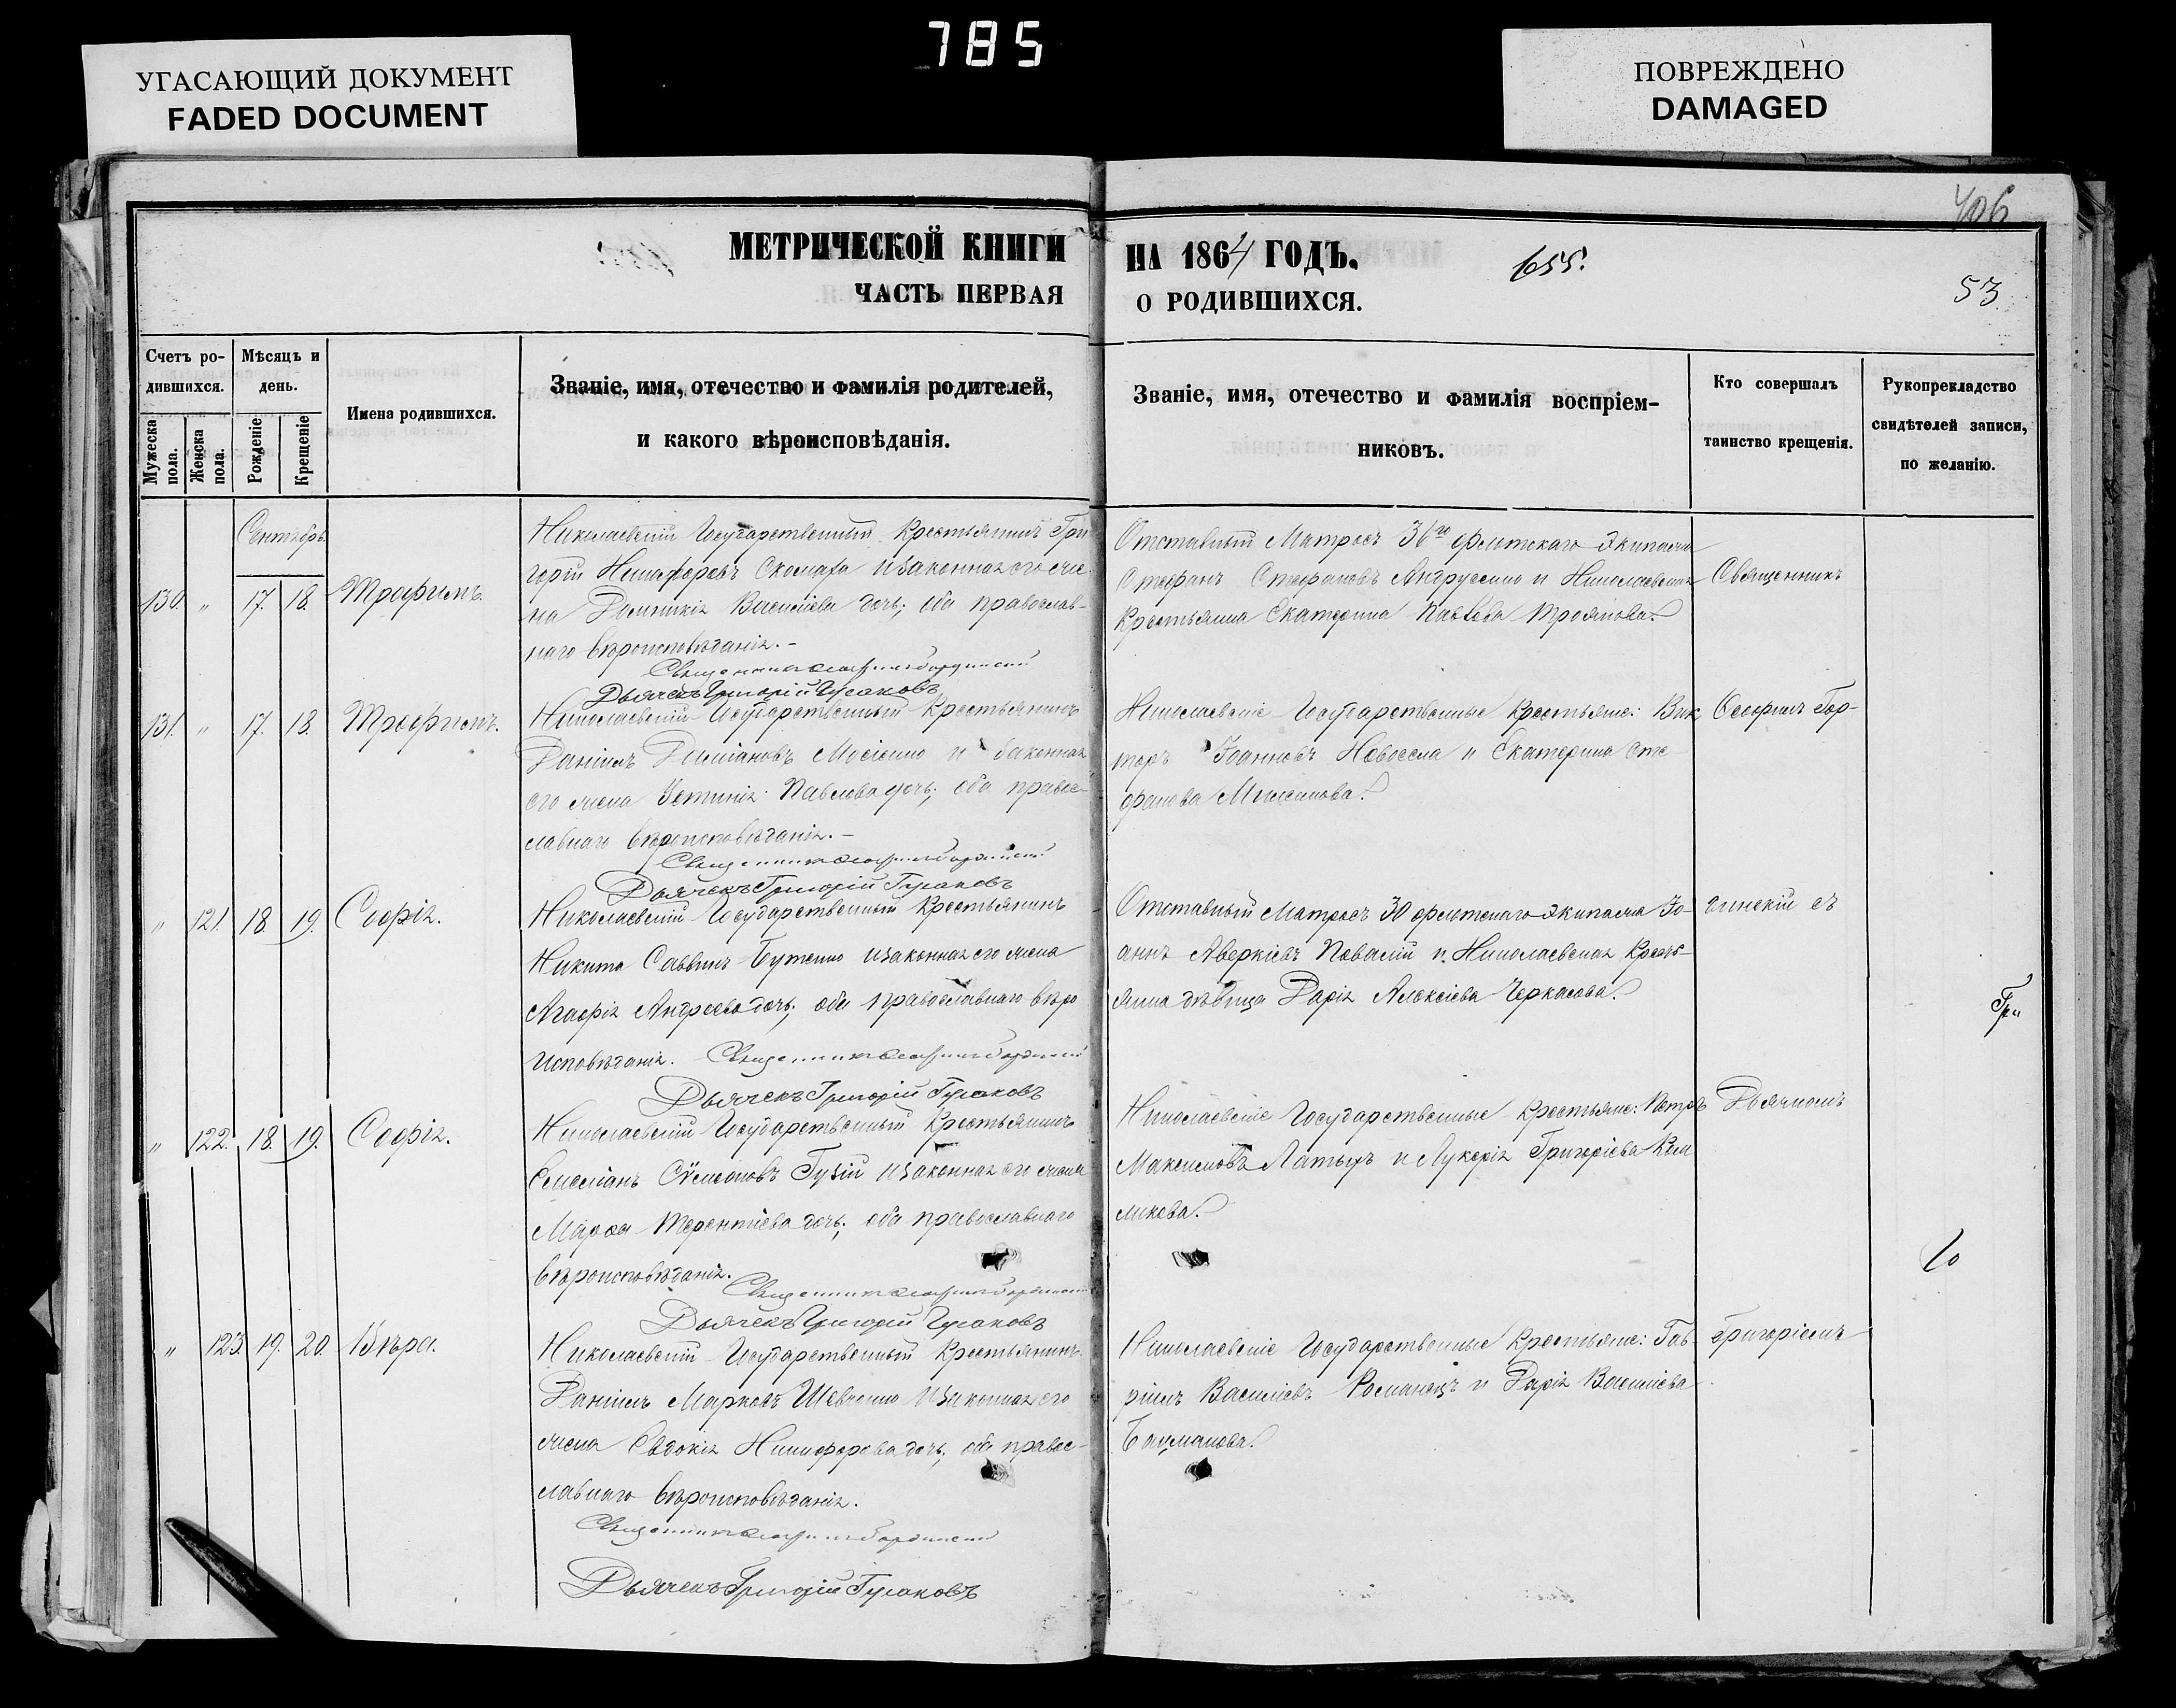 785
УГАСАЮЩИЙ ДОКУМЕНТ
FADED DOCUMENT
ПОВРЕЖДЕНО
DAMAGED
406
МЕТРИЧЕСКОЙ КНИГИ
ЧАСТЬ ПЕРВАЯ
НА 1864 ГОДЪ.
О РОДИВШИХСЯ.
655.
53
Счетъ ро-
дившихся.
Мужеска пола.
Женска пола.
Мѣсяцъ и
день.
Рожденіе
Крещеніе
Имена родившихся.
Званіе, имя, отечество и фамилія родителей,
и какого вѣроисповѣданія.
Званіе, имя, отечество и фамилія воспріем-
никовъ.
Кто совершалъ
таинство крещенія.
Рукоприкладство
свидѣтелей записи,
по желанію.
Сентябрь.
130. " 17. 18. Трофимъ.
Николаевскій Государственный Крестьянинъ Гри
горій Никифоровъ и законная его же
на Домникія Василіева дочь; оба православ-
наго вѣроисповѣданія.-
Священникъ
Дьячекъ Григорій Гусаковъ
Отставный Матросъ 36го флотскаго Экипажа
Стефанъ Стефановъ Андрусенко и Николаевская
Крестьянка Екатерина Павлова Троянова.
Священникъ
131. " 17. 18. Трофимъ.
Николаевскій Государственный Крестьянинъ
Даніилъ Даміановъ Мосіенко и законная
его жена Іустинія Павлова дочь; оба право-
славнаго вѣроисповѣданія.-
Священникъ
Дьячекъ Григорій Гусаковъ
Николаевскіе Государственные Крестьяне: Вик
торъ Іоанновъ Новосела и Екатерина Сте
фанова
" 121. 18. 19. Софія.
Николаевскій Государственный Крестьянинъ
Никита Саввинъ Бутенко и законная его жена
Агафія Андреева дочь; оба православнаго вѣро
исповѣданія. Священникъ
Дьячекъ Григорій Гусаковъ
Отставный Матросъ 30 флотскаго Экипажа Іо-
аннъ Аверкіевъ и Николаевская Кресть-
янка дѣвица Дарія Алексіева Черкасова.
съ
Гри
" 122. 18. 19. Софія.
Николаевскій Государственный Крестьянинъ
Емеліанъ Сѵмеоновъ и законная его жена
Марѳа Терентіева дочь; оба православнаго
вѣроисповѣданія.
Священникъ
Дьячекъ Григорій Гусаковъ
Николаевскіе Государственные Крестьяне: Петръ
Максимовъ Латышъ и Лукерія Григоріева
Дьячкомъ
" 123. 19. 20. Вѣра.
Николаевскій Государственный Крестьянинъ
Даніилъ Марковъ Шевченко и законная его
жена Евдокія Никифорова дочь; оба право-
славнаго вѣроисповѣданія.
Священникъ
Дьячекъ Григорій Гусаковъ
Николаевскіе Государственные Крестьяне: Гав-
ріилъ Василіевъ Романецъ и Дарія Василіева
Бацманова.
Григоріемъ